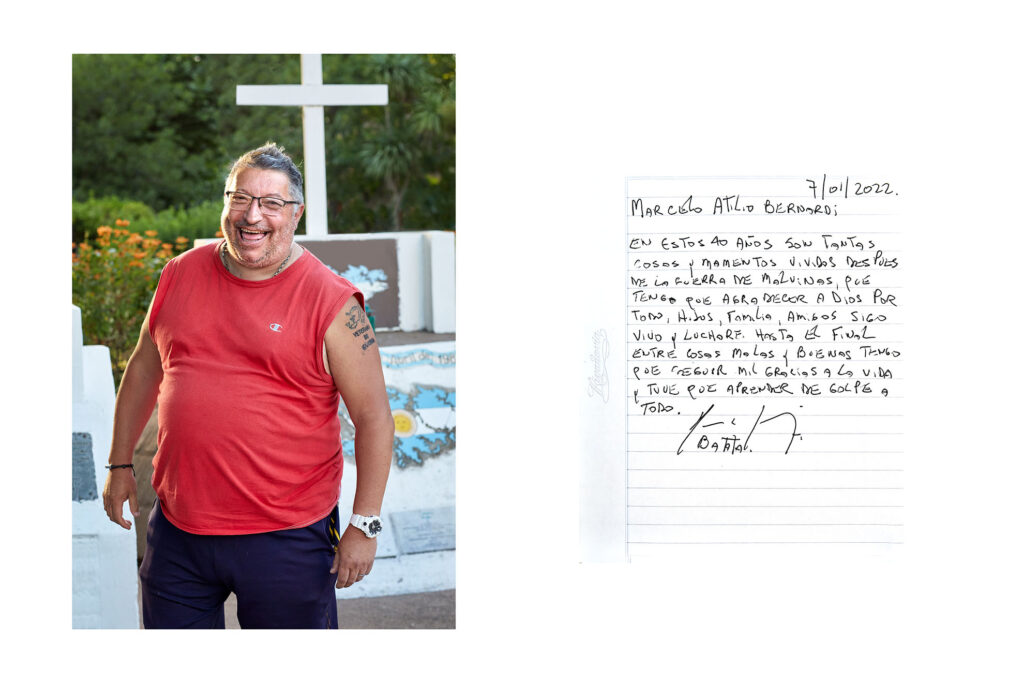 VETERANO
DE
7/01/2022.
MARCELO ATILIO BERNARDI
EN ESTOS 40 AÑOS SON TANTAS
COSAS Y MAMENTOS VIVIDOS DESPUES
DE LA GUERRA DE MALVINAS, QUE
TENGO QUE AGRADECER A DIOS POR
TODO, HIJOS, FAMILIA, AMIGOS SIGO
VIVO Y LUCHARE. HASTA EL FINAL
ENTRE COSAS MALAS Y BUENAS TENGO
QUE SEGUIR MIL GRACIAS A LA VIDA
Y TUVE QUE APRENDER DE GOLPE A
TODO.